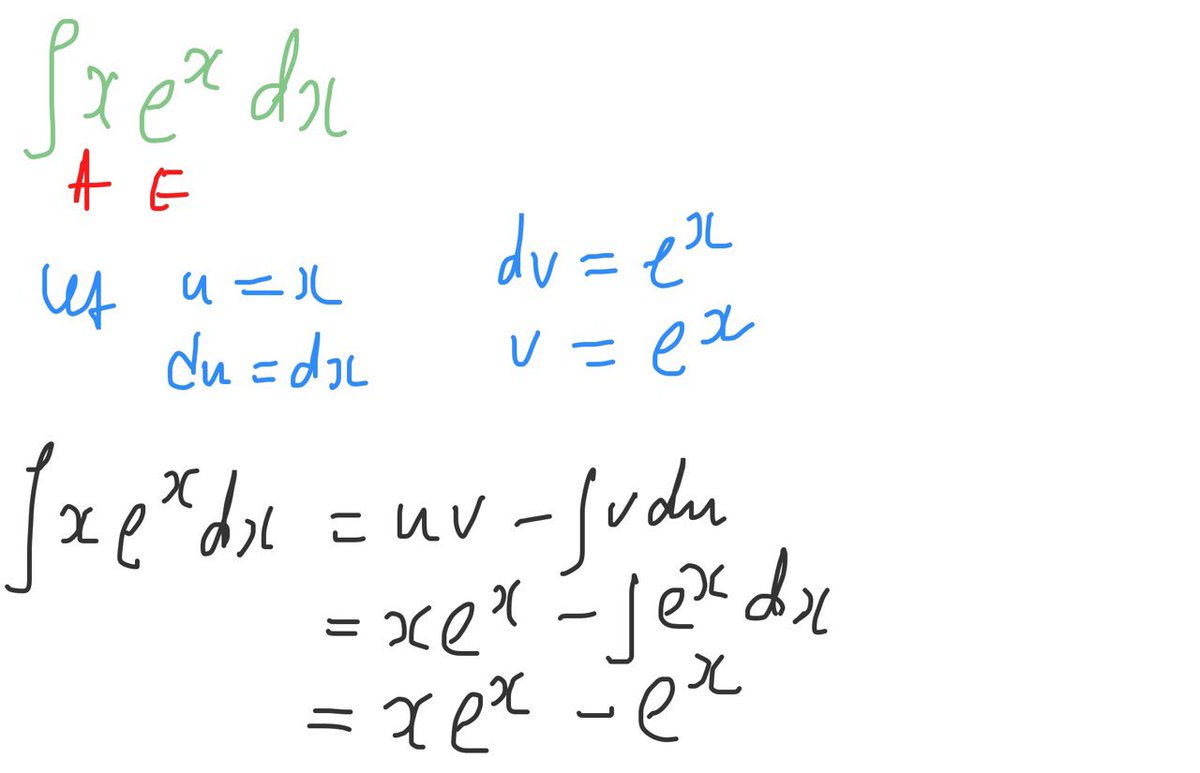 ∫x eˣ dx
A E
let u = x dv = eˣ
du = dx v = eˣ
∫x eˣ dx = uv - ∫v du
= xeˣ - ∫eˣ dx
= xeˣ - eˣ